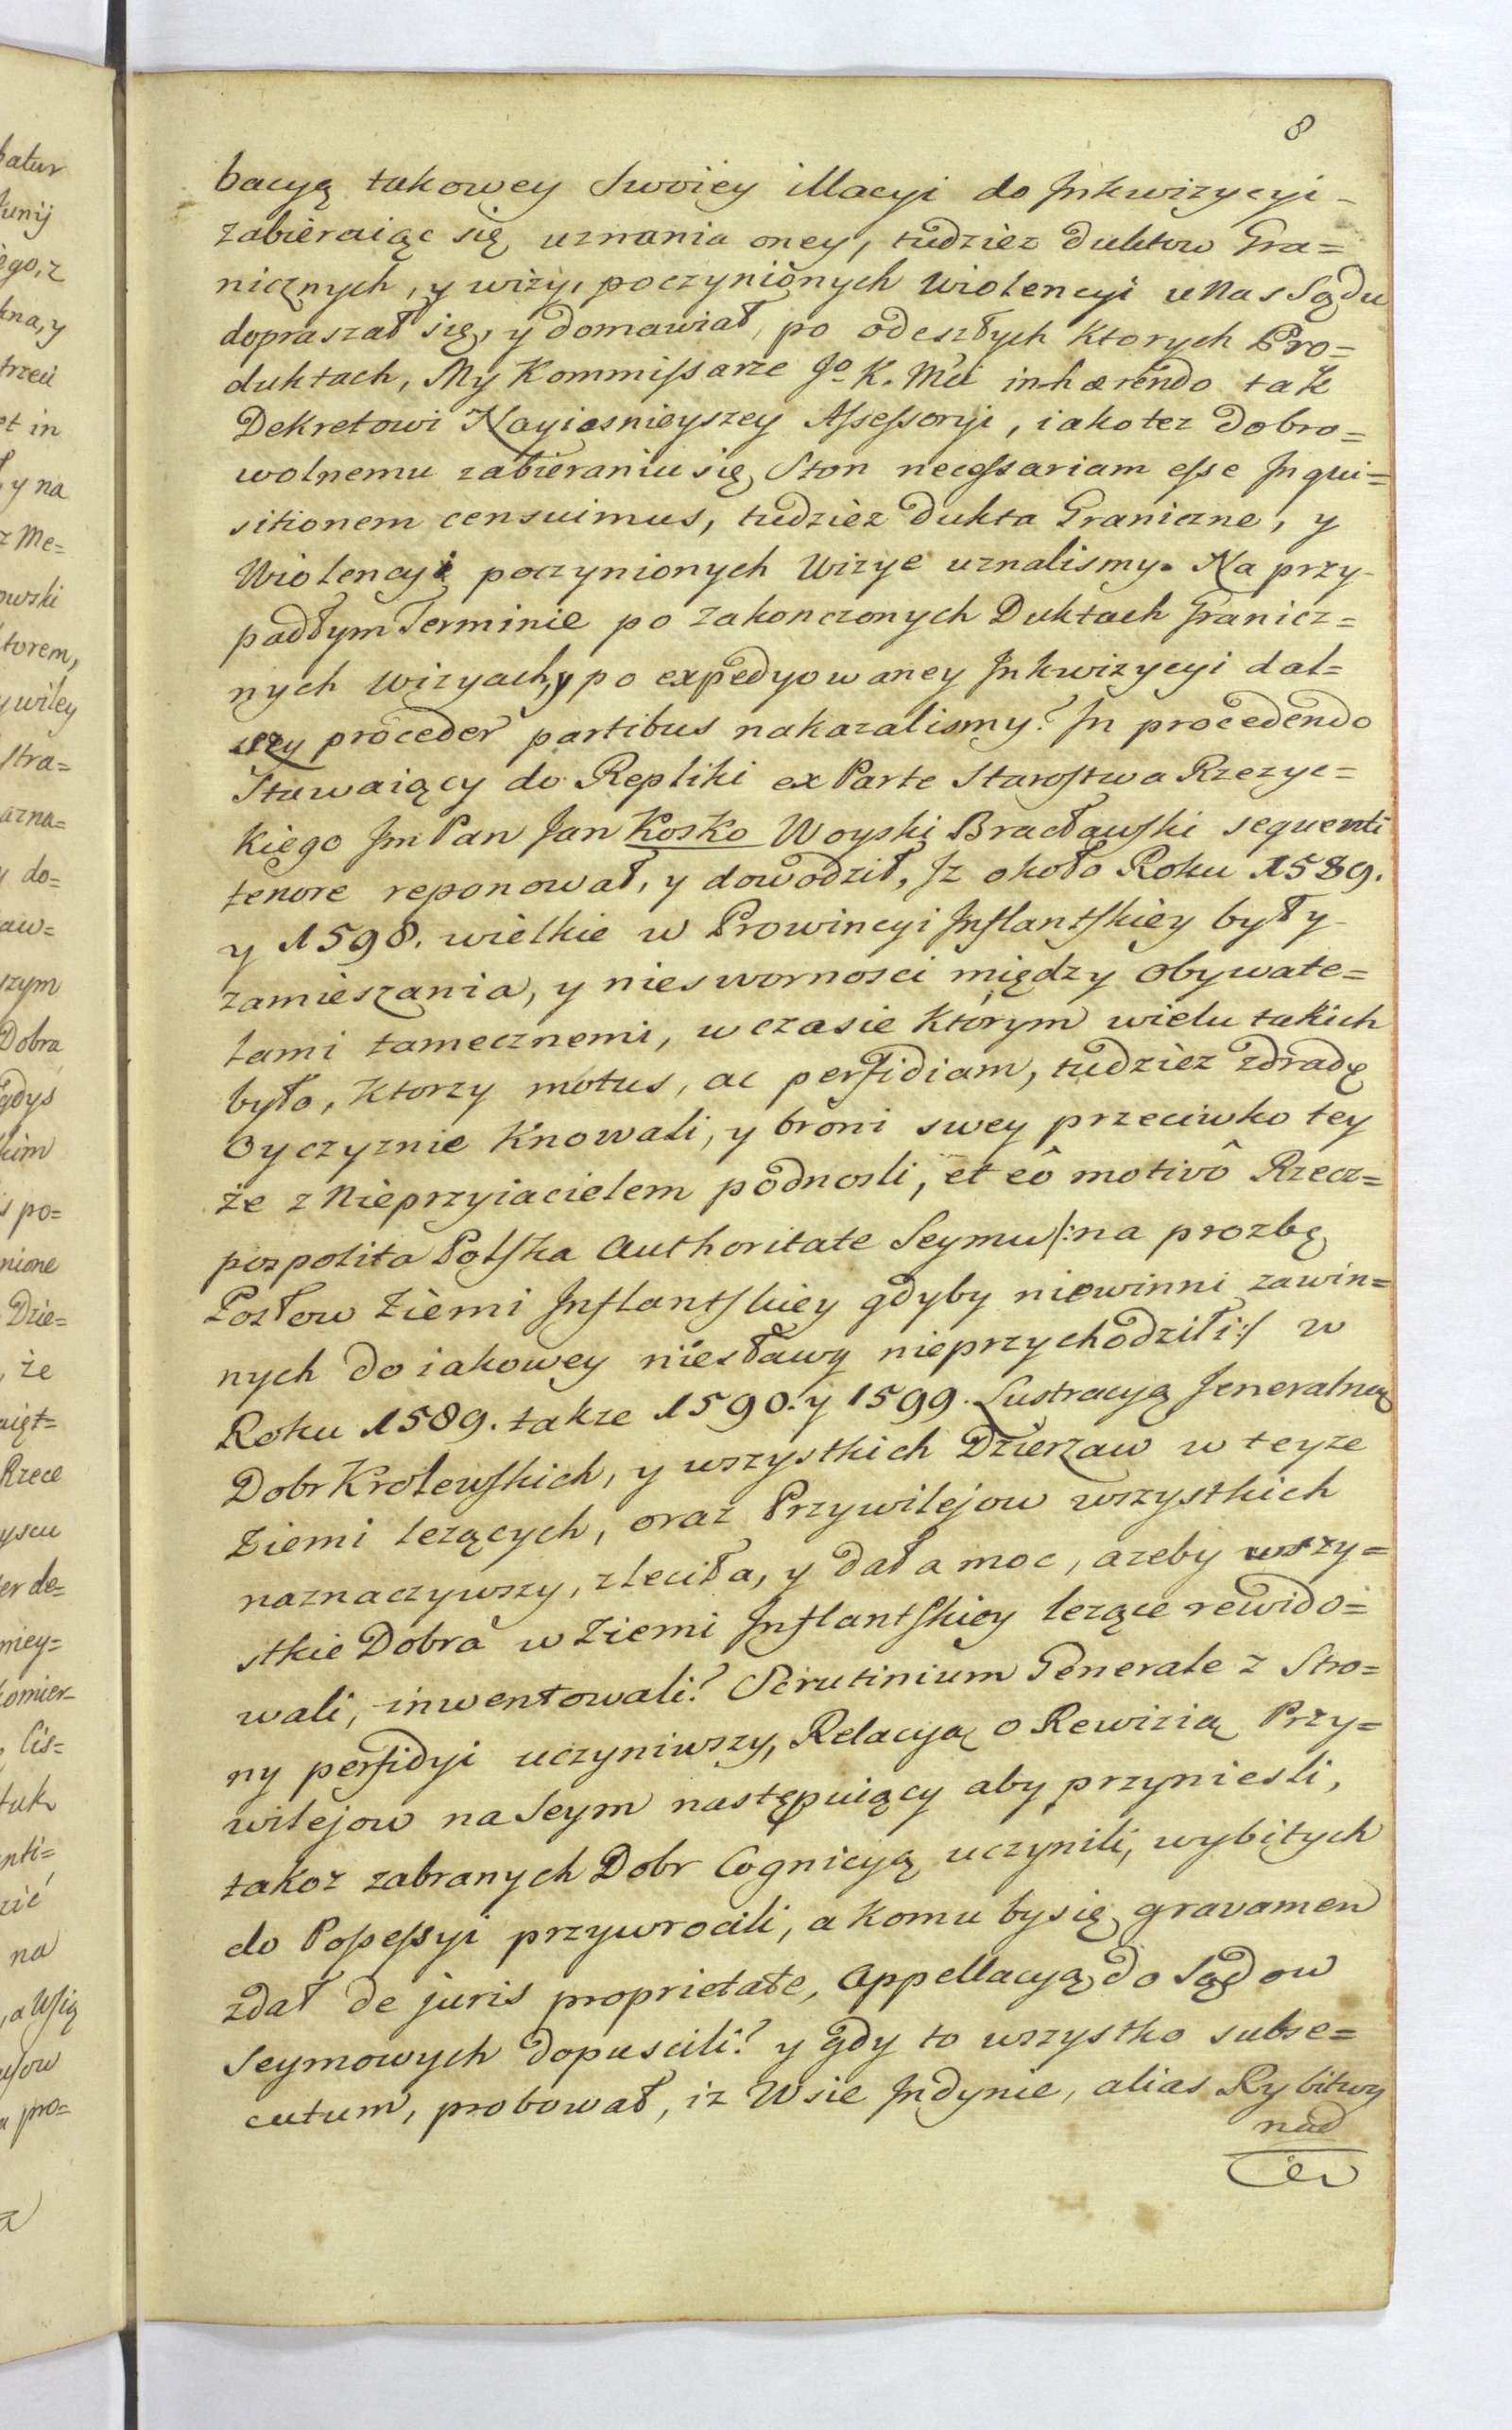 8
bacyą takowey Swoiey illacyi do Inkwizycyi -
zabieraiąc się uznania oney, tudziez duktow Gra=
nicznych, y wizyi poczynionych Wiolencyi u Nas Sądu
dopraszał się, y domawiał, po odeszłych Ktorych Pro=
duktach, My Kommissarze Jo K. Mci inhærendo tak
Dekretowi Nayiasnieyszey Assessoryi, iakotez dobro=
wolnemu zabieraniu się Ston necessariam esse Inqui=
sitionem censuimus, tudziez Dukta Graniczne, y
Wiolencyi poczynionych Wizye uznalismy. Na przy-
padłym Terminie po zakonczonych Duktach Granicz=
nych Wizyach, y po expedyowaney Inkwizycyi dal=
szy proceder partibus nakazalismy? In procedendo
Stawaiący do Repliki ex Parte Starostwa Rzezyc=
kiego Im Pan Jan Kosko Woyski Bracławski sequenti
tenore reponował, y dowodził, Iz około Roku 1589.
y 1598. wielkie w Prowincyi Inflantskiey były
zamieszania, y niesworności między Obywate=
lami tamecznemi, w czasie Którym wielu takich
było, Ktorzy motus, ac perfidiam, tudziez zdradę
Oyczyznie Knowali, y broni swey przeciwko tey
że z Nieprzyiacielem podnosli, et eô motivô Rzecz=
pospolita Polska Authoritate Seymu /:na prozbę
Posłow Ziemi Inflantskiey gdyby niewinni zawin=
nych do iakowey niesławy nieprzychodzili:/ w
Roku 1589. takze 1590. y 1599. Lustracyą Jeneralną
Dobr Krolewskich, y wszystkich Dzierzaw w teyze
Ziemi lezących, oraz Przywilejow wszystkich
naznaczywszy, zleciła, y dała moc, azeby wszy=
stkie Dobra w Ziemi Inflantskiey lezące rewido=
wali, inwentowali? Scrutinium Generale z Stro=
ny perfidyi uczyniwszy, Relacyą o Rewizią Przy=
wilejow na Seym następuiący aby przyniesli,
takoż zabranych Dobr Cognicyą uczynili, wybitych
do Possessyi przywrocili, a Komu bysię gravamen
zdał de juris proprietate, Appellacyą do Sądow
Seymowych dopuscili? y gdy to wszystko subse=
cutum, probował, iz Wsie Indynie, alias Rybitwy
nad